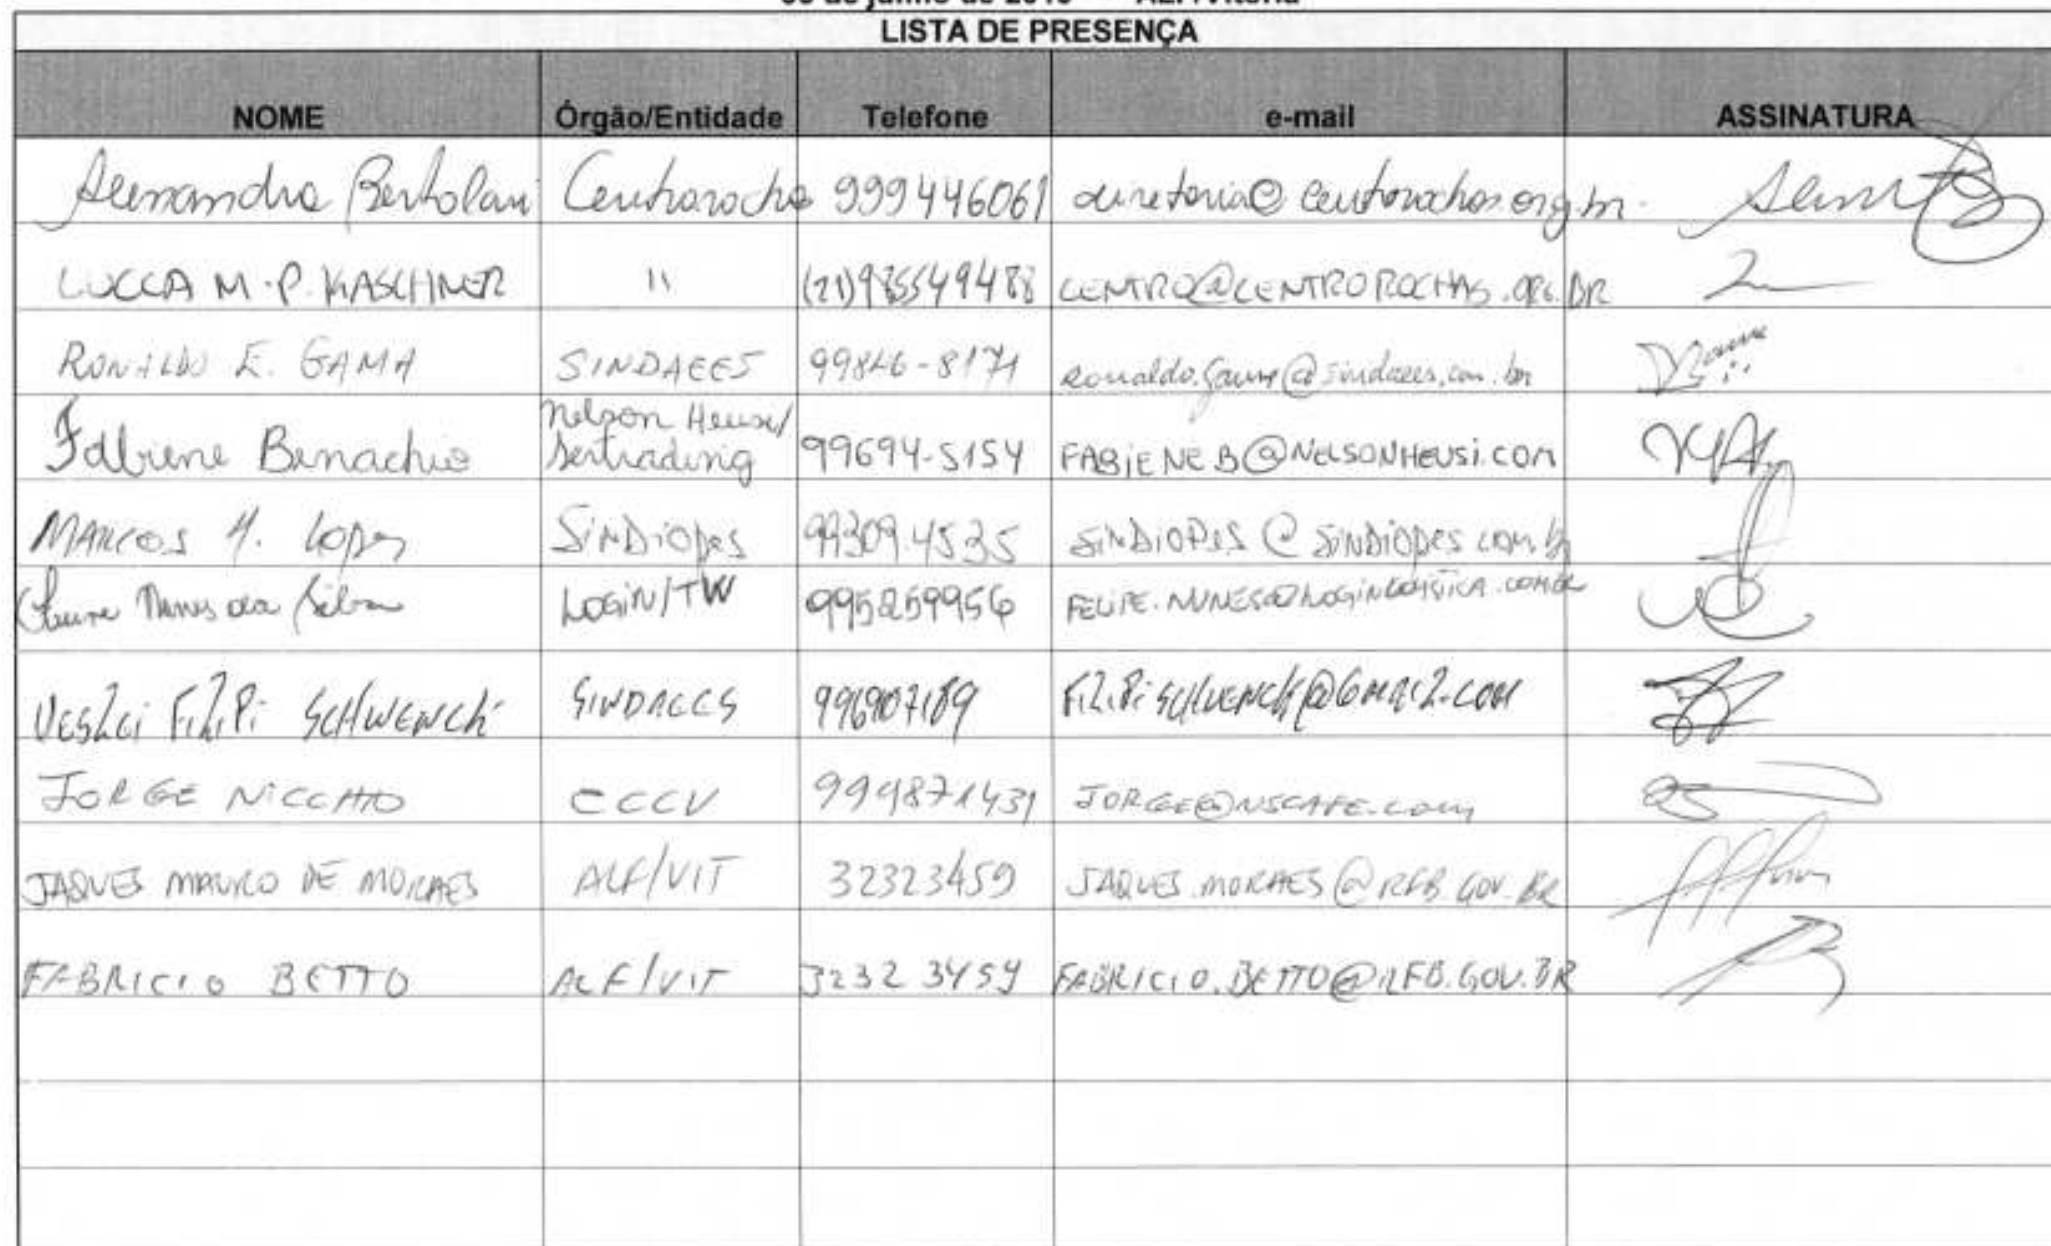 LISTA DE PRESENÇA
NOME Órgão/Entidade Telefone e-mail ASSINATURA
Bertolani Centrorochas 999446061 diretoria@centrorochas.org.br
LUCCA M. P. KASCHNER 11 (21) CENTRO@CENTROROCHAS.ORG.BR
RONALDO E. GAMA SINDAEES ronaldo.gama@sindaees.com.br
Nelson Heusi/
Fabiene Benachio Sertrading 99694-5154 FABIENEB@NELSONHEUSI.COM
MARCOS Lopes SINDIOPES 99309.4535 SINDIOPES@SINDIOPES.com.br
Nunes da Silva LOGIN/TW 995259956 FELIPE.NUNES@LOGINLOGISTICA.COM.BR
FiLiPi SCHWENCK SINDAEES FiLiPiSCHWENCK@GMAIL.COM
JORGE NICCHIO CCCV 999871431 JORGE@NSCAFE.com
JAQUES MAURO DE MORAES ALF/VIT 32323459 JAQUES.MORAES@RFB.GOV.BR
FABRICIO BETTO ALF/VIT 3232 3459 FABRICIO.BETTO@RFB.GOV.BR